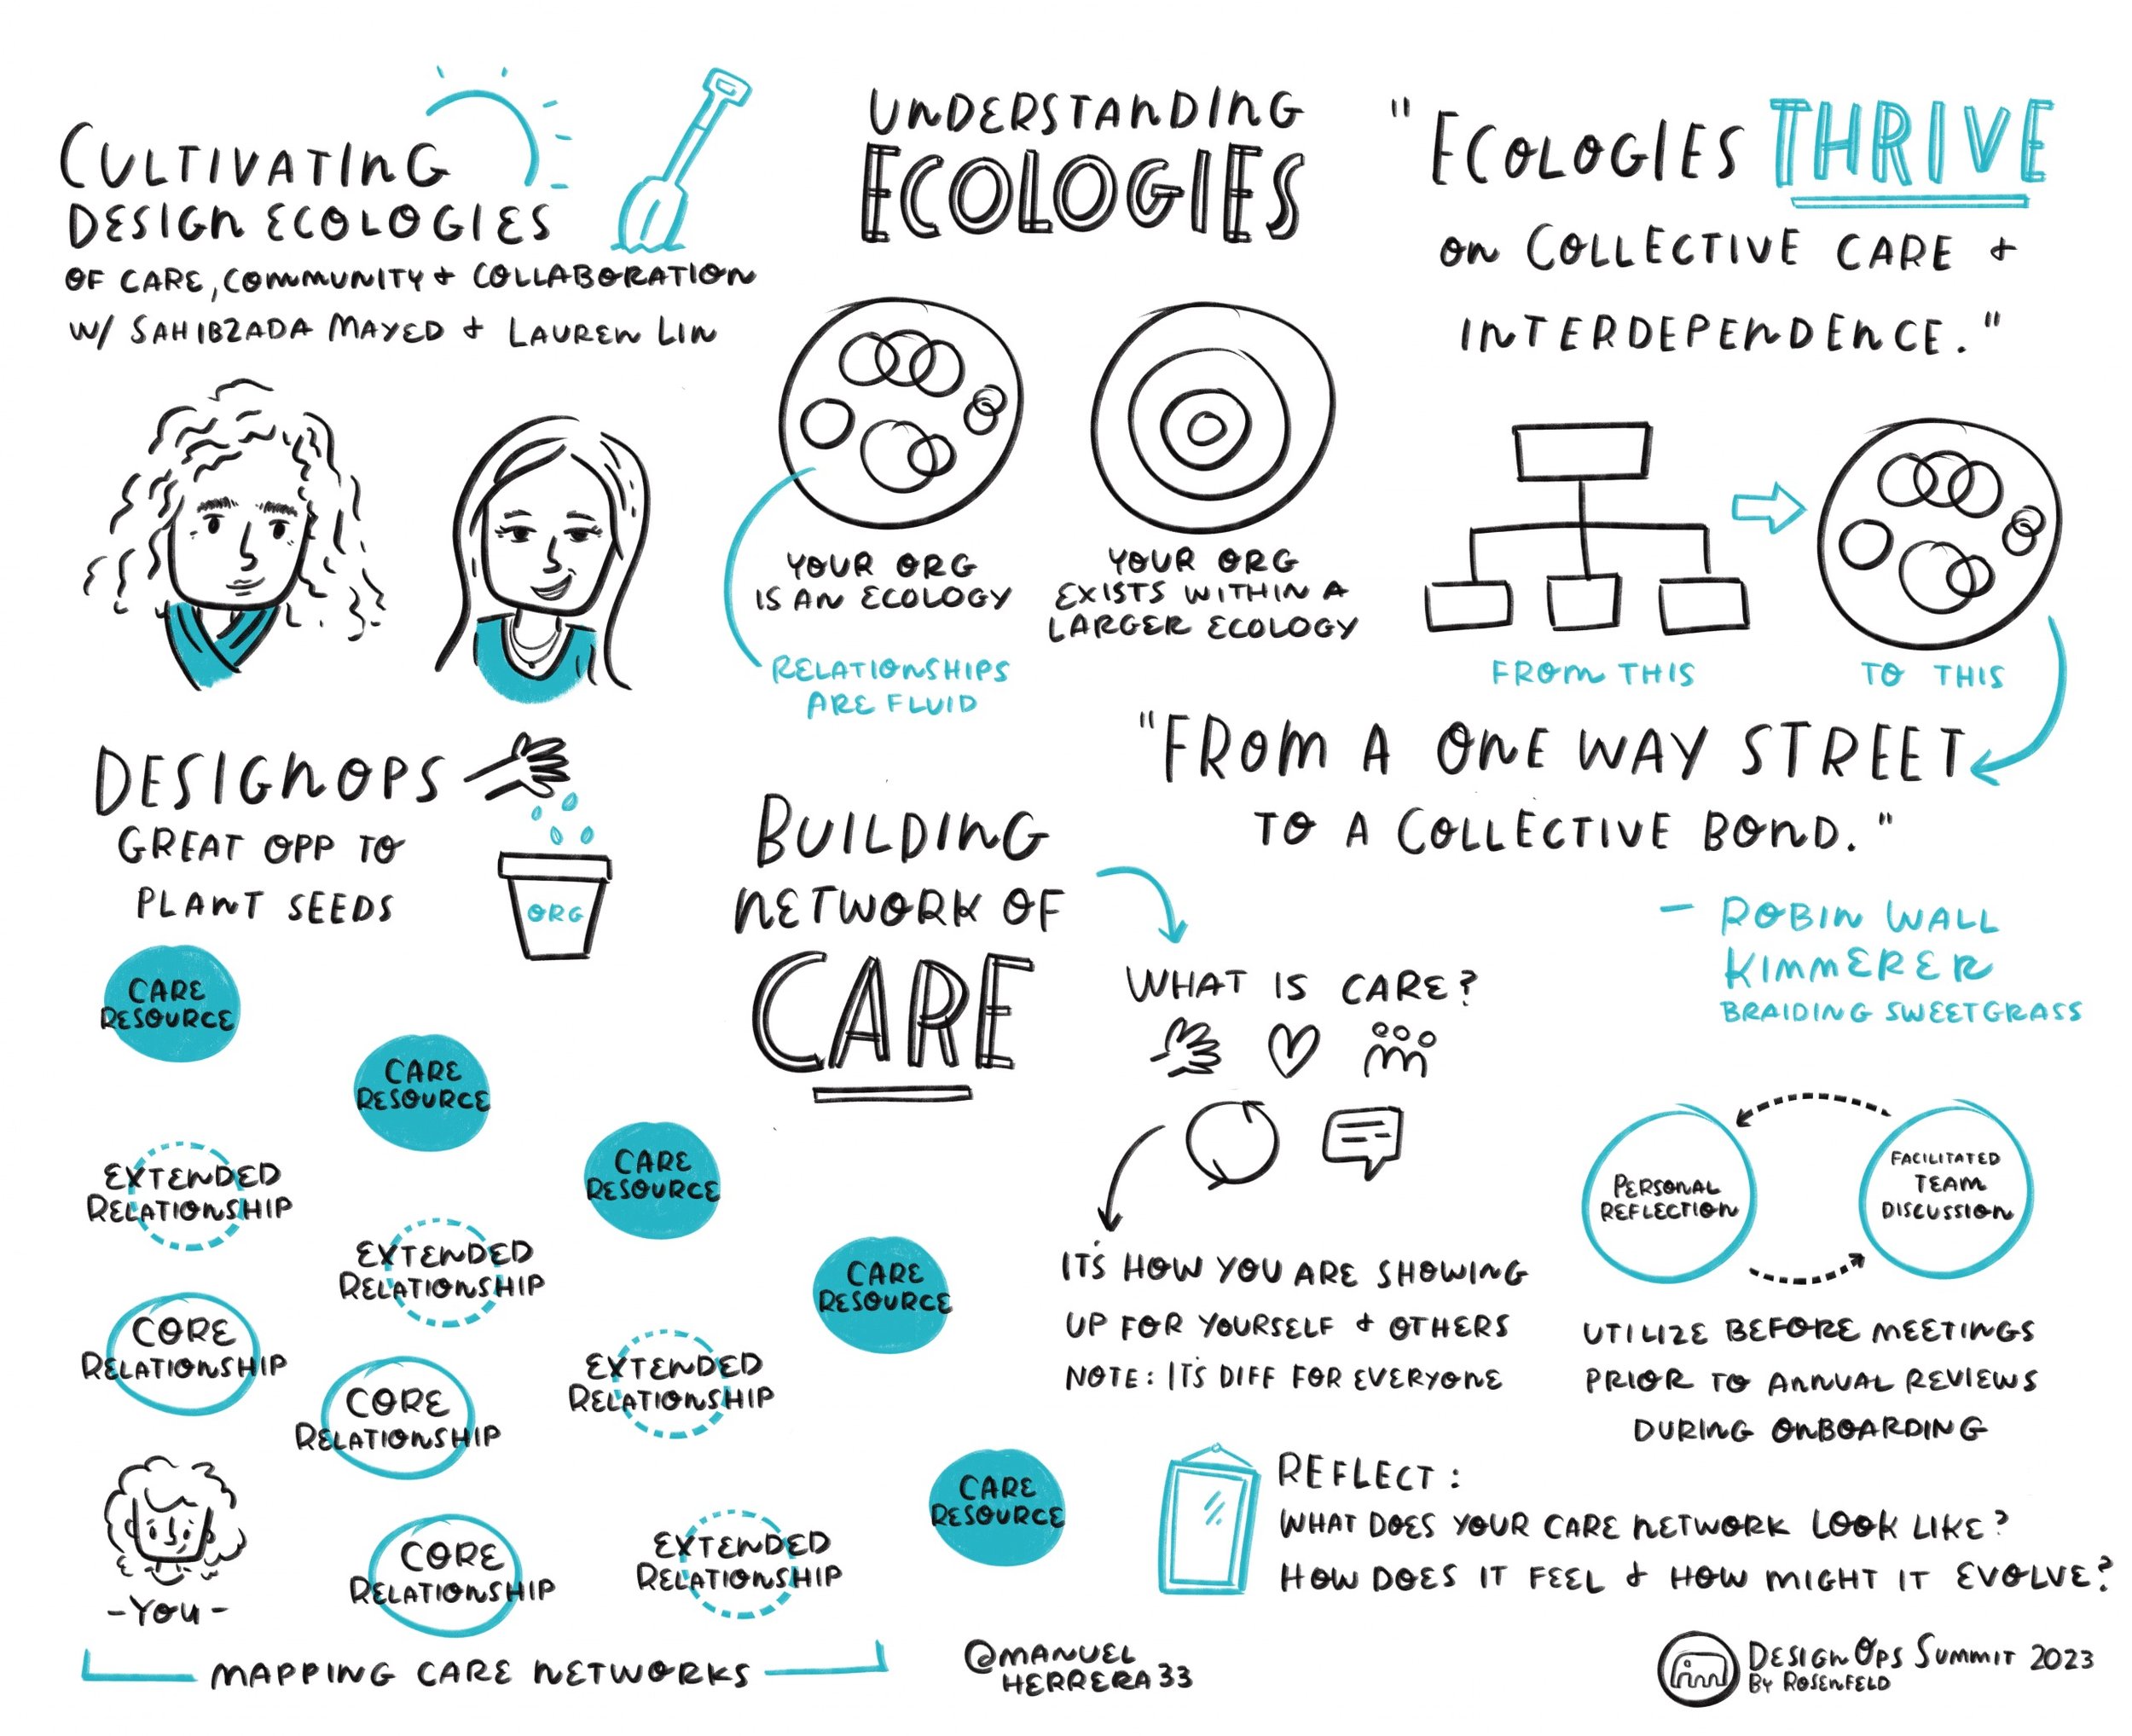 CULTIVATING
DESIGN ECOLOGIES
OF CARE, COMMUNITY + COLLABORATION
W/ SAHIBZADA MAYED + LAUREN LIN
UNDERSTANDING
ECOLOGIES
YOUR ORG
IS AN ECOLOGY
RELATIONSHIPS
ARE FLUID
YOUR ORG
EXISTS WITHIN A
LARGER ECOLOGY
"ECOLOGIES THRIVE
ON COLLECTIVE CARE +
INTERDEPENDENCE."
FROM THIS
TO THIS
"FROM A ONE WAY STREET
TO A COLLECTIVE BOND."
- ROBIN WALL
KIMMERER
BRAIDING SWEETGRASS
DESIGNOPS
GREAT OPP TO
PLANT SEEDS
ORG
BUILDING
NETWORK OF
CARE
WHAT IS CARE?
IT'S HOW YOU ARE SHOWING
UP FOR YOURSELF + OTHERS
NOTE: IT'S DIFF FOR EVERYONE
PERSONAL
REFLECTION
FACILITATED
TEAM
DISCUSSION
UTILIZE BEFORE MEETINGS
PRIOR TO ANNUAL REVIEWS
DURING ONBOARDING
REFLECT:
WHAT DOES YOUR CARE NETWORK LOOK LIKE?
HOW DOES IT FEEL + HOW MIGHT IT EVOLVE?
CARE
RESOURCE
CARE
RESOURCE
CARE
RESOURCE
CARE
RESOURCE
CARE
RESOURCE
EXTENDED
RELATIONSHIP
EXTENDED
RELATIONSHIP
EXTENDED
RELATIONSHIP
EXTENDED
RELATIONSHIP
CORE
RELATIONSHIP
CORE
RELATIONSHIP
CORE
RELATIONSHIP
-YOU-
MAPPING CARE NETWORKS
@MANUEL
HERRERA33
DESIGNOPS SUMMIT 2023
BY ROSENFELD